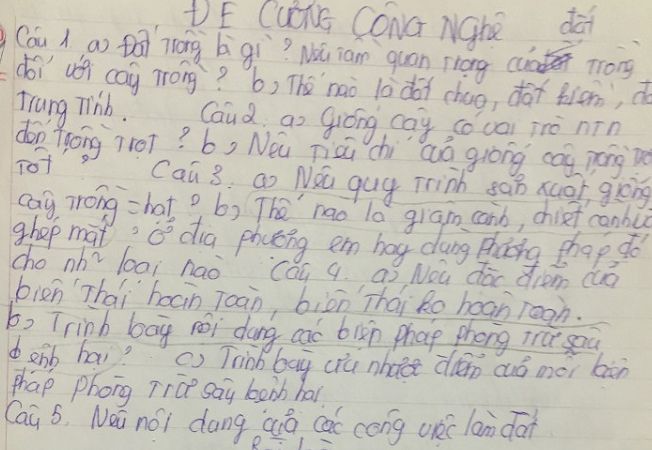 ĐỀ CƯƠNG CÔNG NGHỆ
đất
Câu 1 a) Đất trồng là gì? Nêu tầm quan trọng của trồng
đối với cây trồng? b) Thế nào là đất chua, đất kiềm, đ
trung tính. Câu 2. a) Giống cây có vai trò ntn
đến trồng trọt? b) Nêu tiêu chí của giống cây trồng
tốt? Câu 3. a) Nêu quy trình sản xuất giống
cây trồng = hạt? b) Thế nào là giâm cành, chiết cành,
ghép mắt? ở địa phương em hay dùng phương pháp đó
cho nh~ loại nào Câu 4. a) Nêu đặc điểm của
biến thái hoàn toàn, biến thái ko hoàn toàn.
b) Trình bày nội dung các biện pháp phòng trừ sâu
bệnh hại? c) Trình bày ưu nhược điểm của mỗi biện
pháp phòng trừ sâu bệnh hại
Câu 5. Nêu nội dung của các công việc làm đất